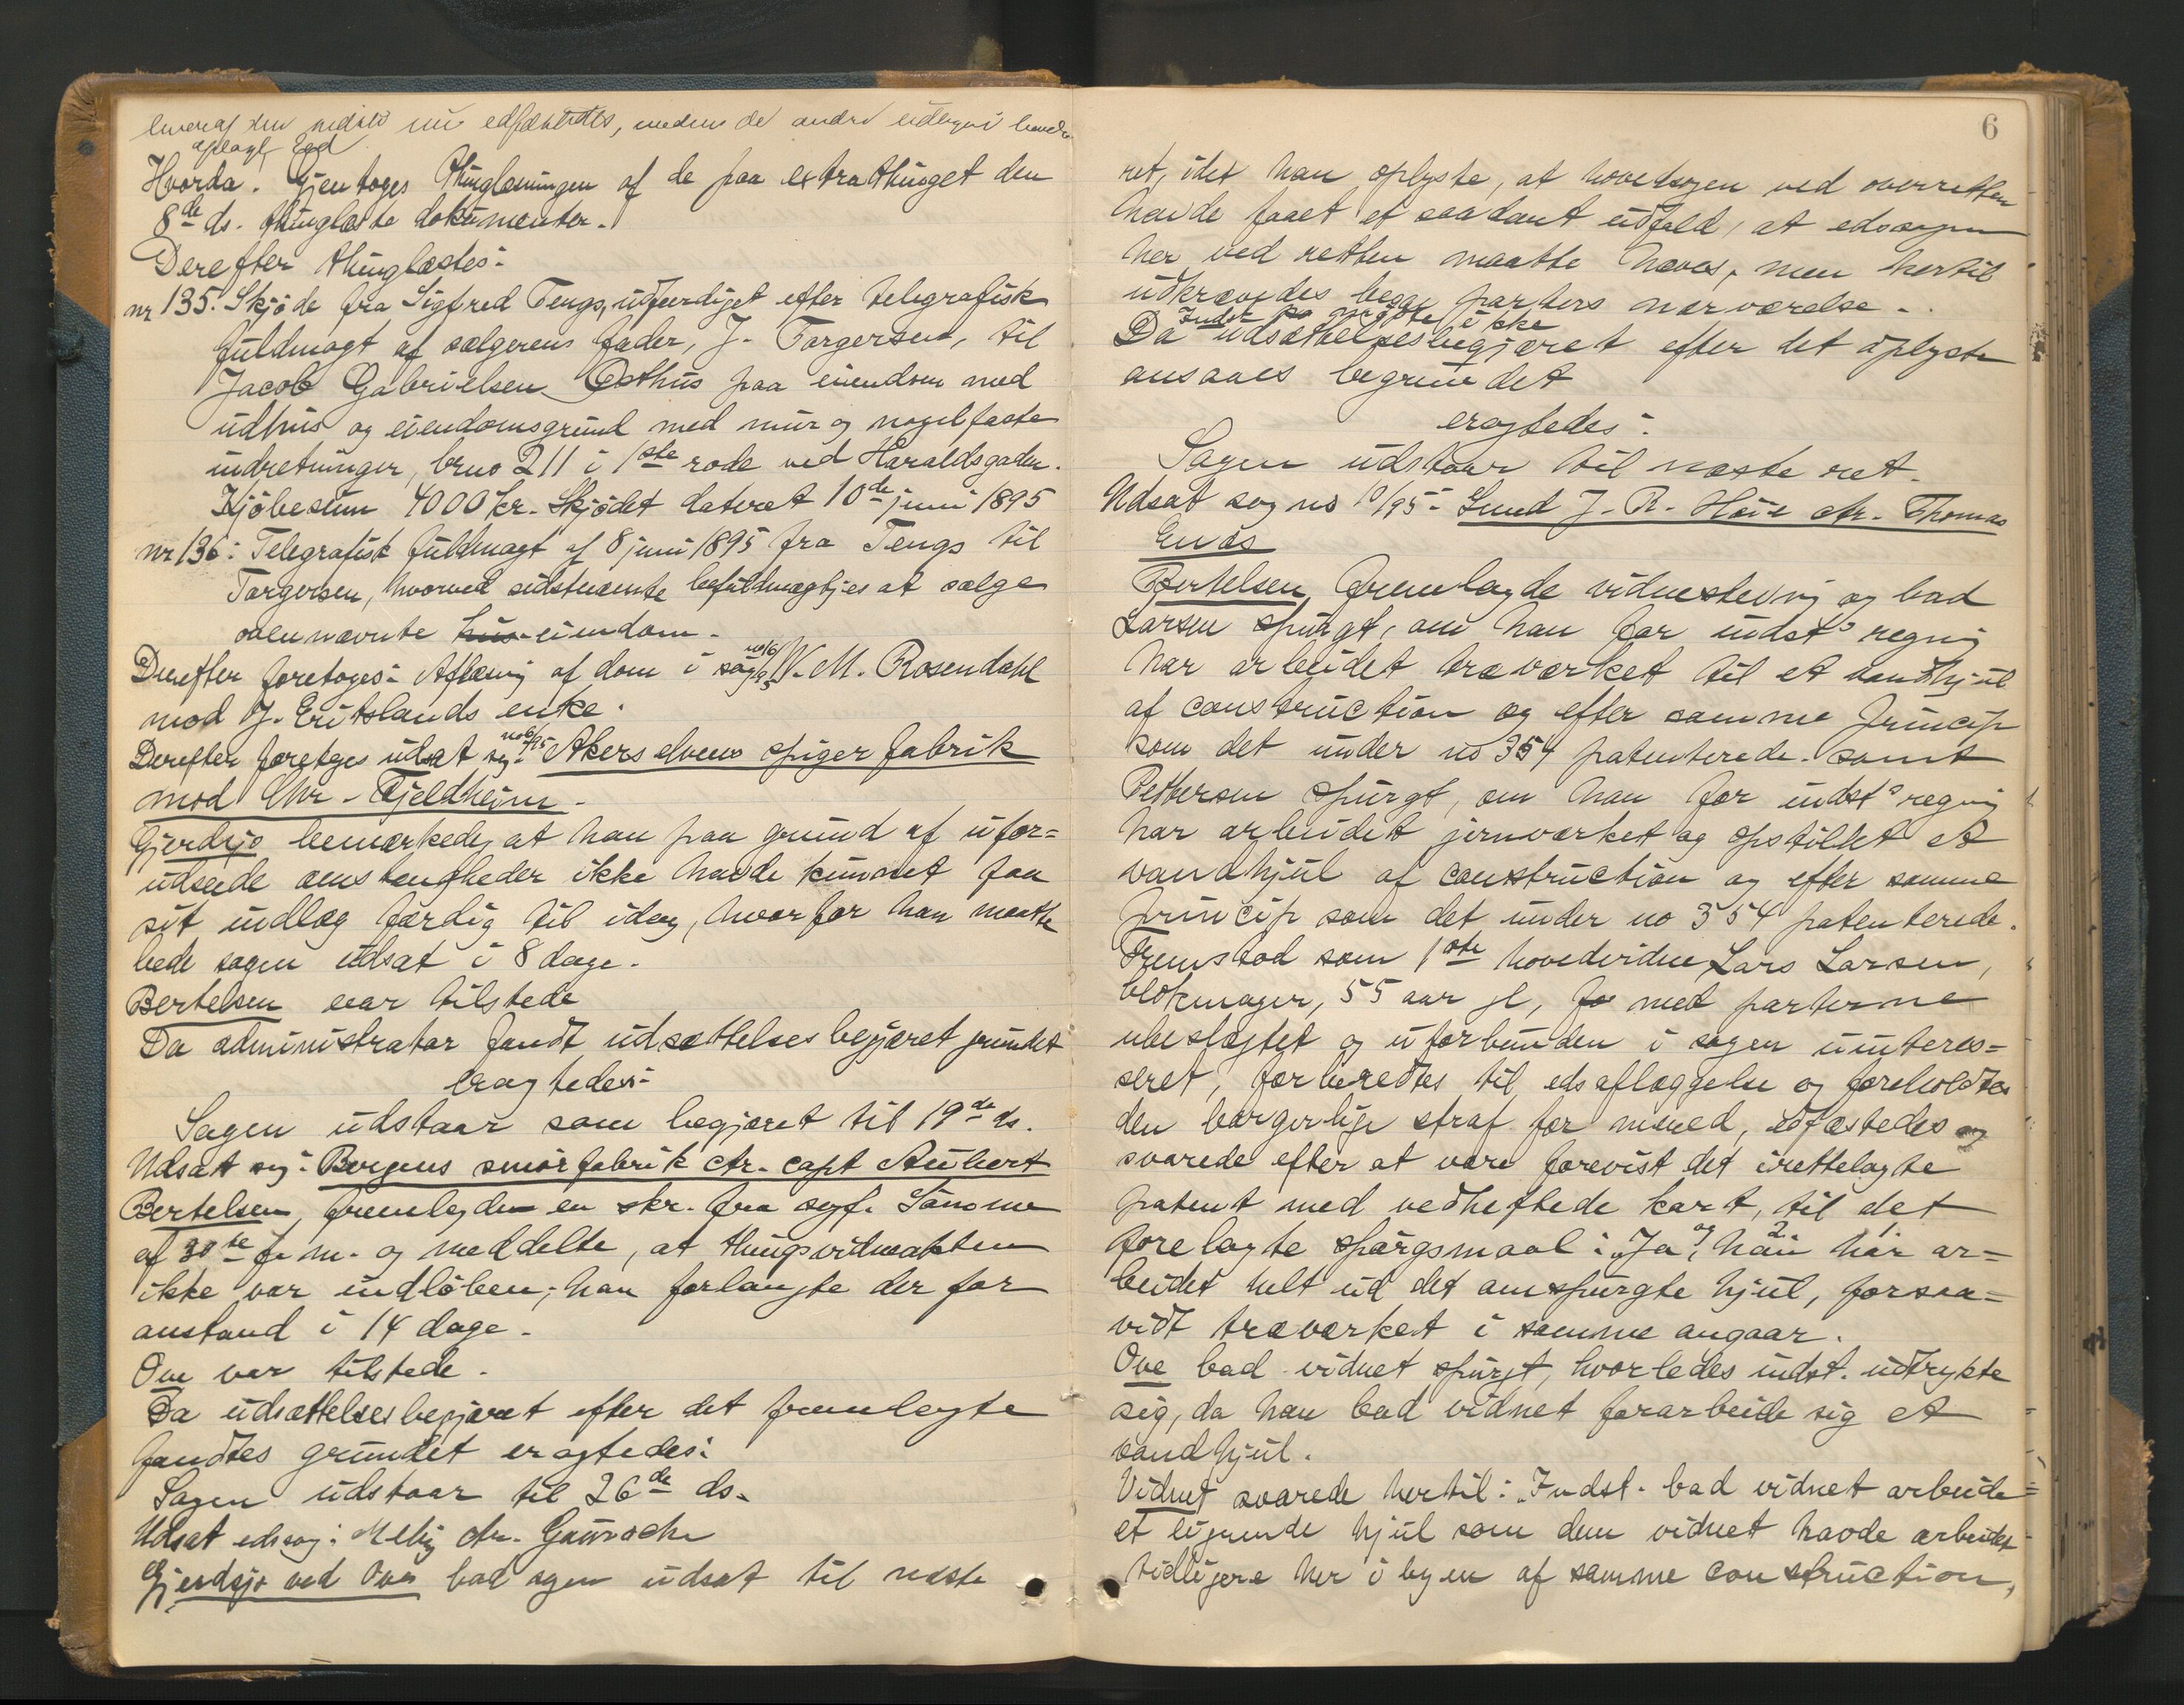 hveraf den nu edfæstedes, medens de andre
aflagt Eed
Hvorda. Gjentoges thinglæsningen af de paa extrathinget den
8de ds. thinglæste dokumenter.
Derefter thinglæstes:
nr 135. Skjöde fra Sigfred Tengs, udfærdiget efter telegrafisk
fuldmagt af sælgerens fader, J. Torgersen, til
Jacob Gabrielsen Østhus paa eiendom med
udhus og eiendomsgrund med mur og nagelfaste
indretninger, brno 211 i 1ste rode ved Haraldsgaden.
Kjöbesum 4000 kr. Skjödet dateret 10de juni 1895
nr 136: Telegrafisk fuldmagt af 8 juni 1895 fra Tengs til
Torgersen, hvorved sidstnævnte befuldmægtiges at sælge
ovennævnte hus eiendom.
Derefter foretoges: Aflæsning af dom i sag no 16/95 W. M. Rosendahl
mod J. Eritslands enke.
Derefter foretoges udsat sag no 6/95: Akerselvens spigerfabrik
mod Chr. Fjeldheim.
Gjerdsjö bemærkede, at han paa grund af ufor=
udseede omstendigheder ikke havde kunnet faa
sit indlæg færdig til idag, hvorfor han maatte
bede sagen udsat i 8 dage.
Bertelsen var tilstede
Da administrator fandt udsættelsesbegjæret grundet
eragtedes:
Sagen udstaar som begjæret til 19de ds.
Udsat sag: Bergens smörfabrik ctr. capt Aubert
Bertelsen, fremlagde en skr. fra sagf. Sömme
af 30te f. m. og meddelte, at thingsvidneakten
ikke var indlöben; han forlangte derfor
anstand i 14 dage.
Ove var tilstede.
Da udsættelsesbegjæret efter det fremlagte
fandtes grundet eragtedes:
Sagen udstaar til 26de ds.
Udsat edssag: Melig ctr.
Gjerdsjö ved Ove bad sagen udsat til næste
6
ret, idet han oplyste, at hovedsagen ved overretten
havde faaet et saadant udfald, at edssagen
her ved retten maatte hæves, men hertil
udkrævedes begge parters nærværelse.
Indst. mötte ikke
Da udsættelsesbegjæret efter det oplyste
ansaaes begrundet
eragtedes:
Sagen udstaar til næste ret.
Udsat sag no 10/95: Lund J. R. Höie ctr. Thomas
Enæs
Bertelsen, fremlagde vidnestevning og bad
Larsen spurgt, om han for indsts regning
har arbeidet træværket til et vandhjul
af construction og efter samme princip
som det under no 354 patenterede. samt
Pettersen spurgt, om han for indsts regning
har arbeidet jernværket og opstillet et
vandhjul af construction og efter samme
princip som det under no 354 patenterede.
Fremstod som 1ste hovedvidne Lars Larsen,
blokmager, 55 aar gl, fo med parterne
ubeslægtet og uforbunden i sagen uinteres=
seret, forberedtes til edsaflæggelse og foreholdtes
den borgerlige straf for mened, edfæstedes og
svarede efter at være forevist det irettelagte
patent med vedheftede kart, til det
forelagte spörgsmaal: "Ja", og han har ar=
beidet helt ud det omspurgte hjul, forsaa=
vidt træværket i samme angaar.
Ove bad vidnet spurgt, hvorledes indst. udtrykte
sig, da han bad vidnet forarbeide sig et
vandhjul.
Vidnet svarede hertil: "Indst. bad vidnet arbeide
et lignende hjul som dem vidnet havde arbeidet
tidligere her i byen af samme construction,